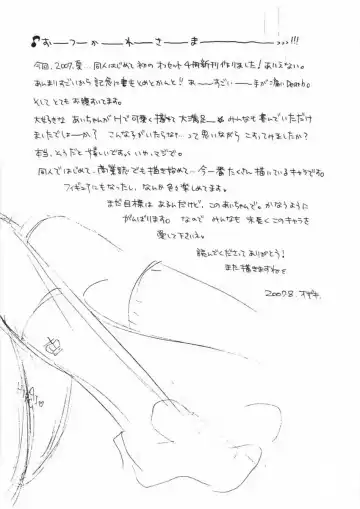 ♪おーーつーーかーーれーーさーーまーーーーー...!!!
今回、2007.夏...同人はじめて初のオフセット4冊新刊作りました!ありえない。
あんまりすごいから記念に書きとめとかんと!!おーすごいー手が痛い
そしてとてもお腹すいてます。
大好きな あいちゃんがHで可愛く描けて大満足ー みんなも喜んでいただけ
ましたでしょーか? こんな子がいたらな...って思いながら こすってみましたか?
本当、そうだと嬉しいですよいや、マジで。
同人はじめて、商業誌でも描き始めて...今一番たくさん描いているキャラです。
フィギュアにもなったし、なんか色々楽しめてます。
まだ目標はあるんだけど、このあいちゃんで。かなうように
がんばります。 なので みんなも末長くこのキャラを
愛して下さいネ。
読んでくださってありがとう!
また描きますわ
2007.8. オザキ.